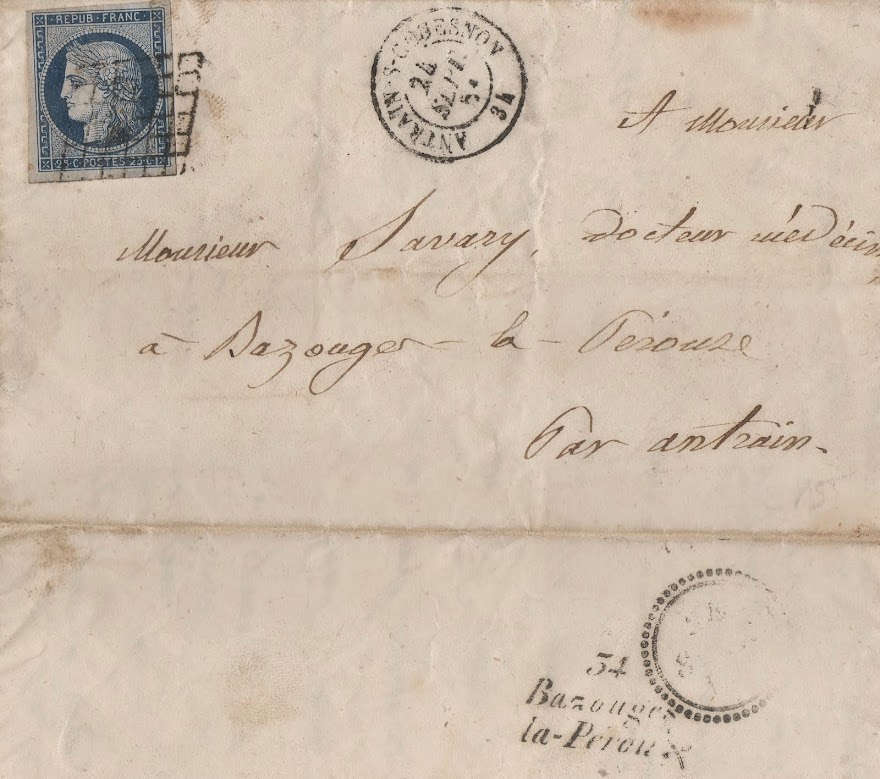 REPUB·FRANC·
25·C·POSTES·25·C
ANTRAIN-S-COUESNON
24
SEPT.
34
A Monsieur
Monsieur Savary, docteur médecin
à Bazouges-la-Pérouze
Par antrain.
34
Bazouges
la-Pérou